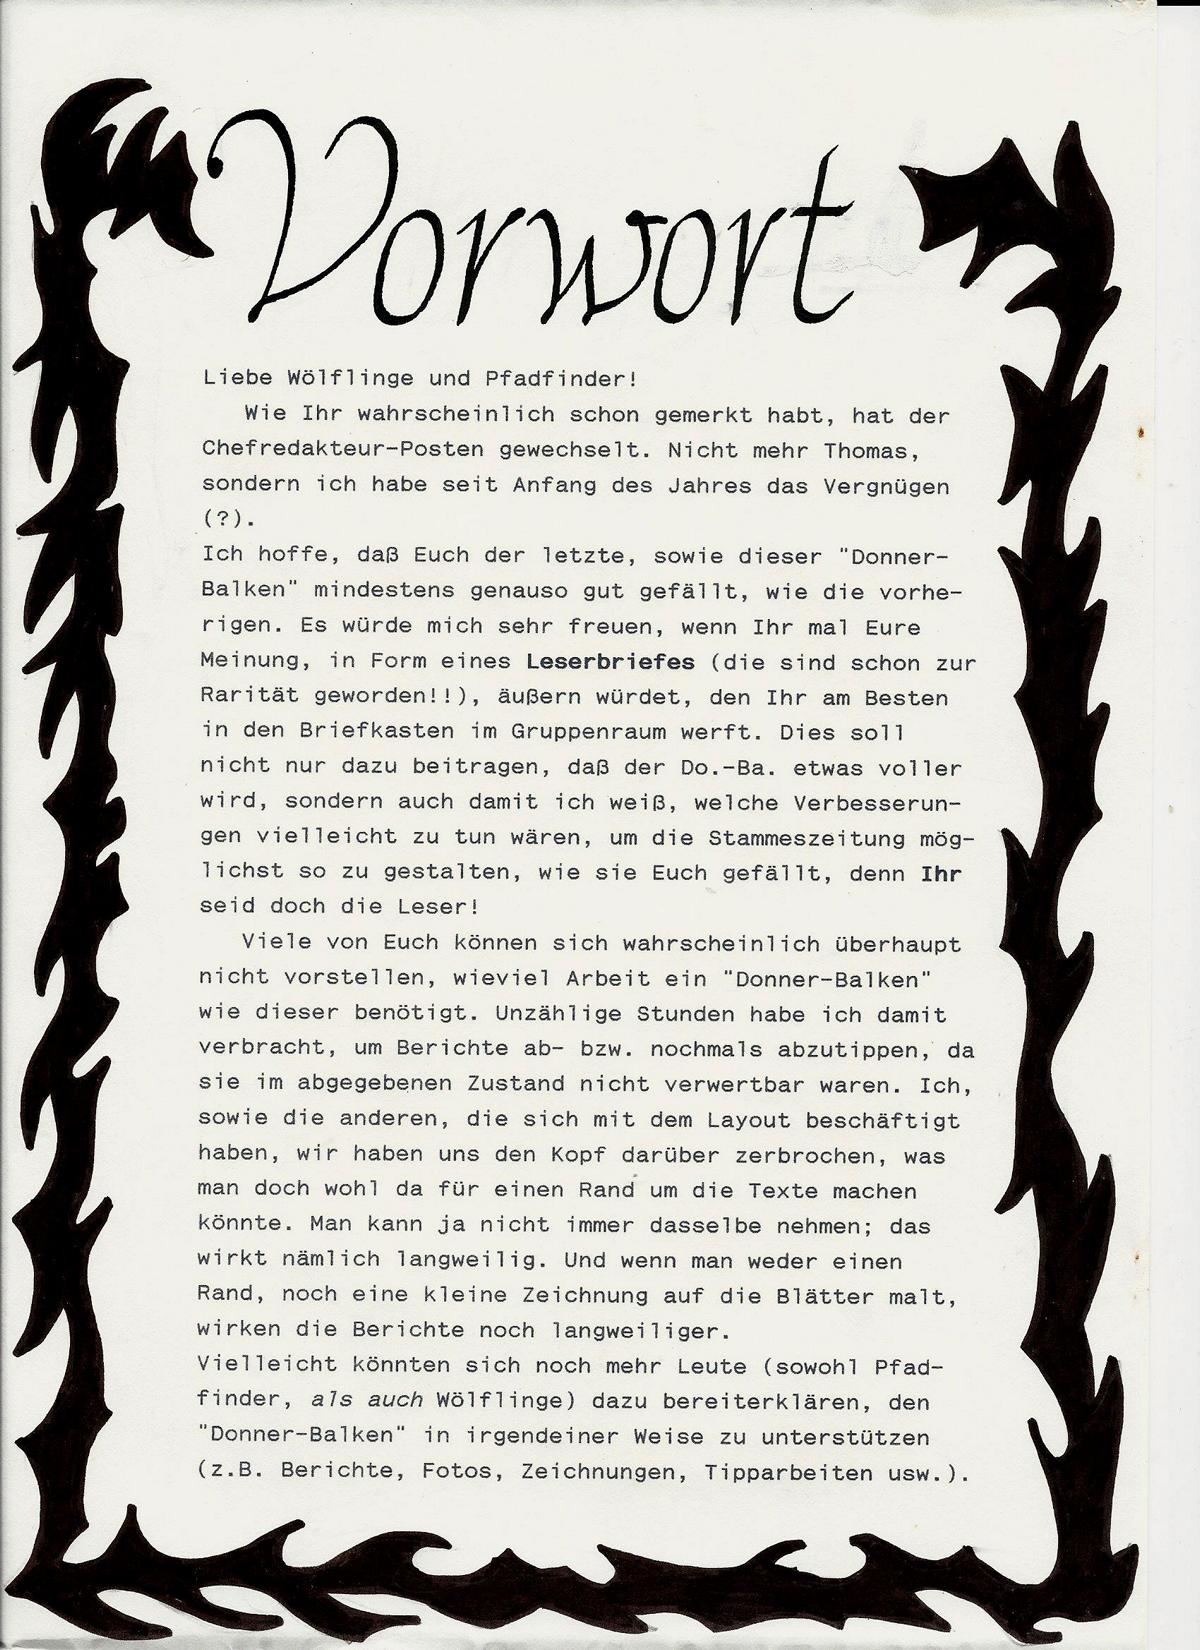 Vorwort
Liebe Wölflinge und Pfadfinder!
Wie Ihr wahrscheinlich schon gemerkt habt, hat der
Chefredakteur-Posten gewechselt. Nicht mehr Thomas,
sondern ich habe seit Anfang des Jahres das Vergnügen
(?).
Ich hoffe, daß Euch der letzte, sowie dieser "Donner-
Balken" mindestens genauso gut gefällt, wie die vorhe-
rigen. Es würde mich sehr freuen, wenn Ihr mal Eure
Meinung, in Form eines Leserbriefes (die sind schon zur
Rarität geworden!!), äußern würdet, den Ihr am Besten
in den Briefkasten im Gruppenraum werft. Dies soll
nicht nur dazu beitragen, daß der Do.-Ba. etwas voller
wird, sondern auch damit ich weiß, welche Verbesserun-
gen vielleicht zu tun wären, um die Stammeszeitung mög-
lichst so zu gestalten, wie sie Euch gefällt, denn Ihr
seid doch die Leser!
Viele von Euch können sich wahrscheinlich überhaupt
nicht vorstellen, wieviel Arbeit ein "Donner-Balken"
wie dieser benötigt. Unzählige Stunden habe ich damit
verbracht, um Berichte ab- bzw. nochmals abzutippen, da
sie im abgegebenen Zustand nicht verwertbar waren. Ich,
sowie die anderen, die sich mit dem Layout beschäftigt
haben, wir haben uns den Kopf darüber zerbrochen, was
man doch wohl da für einen Rand um die Texte machen
könnte. Man kann ja nicht immer dasselbe nehmen; das
wirkt nämlich langweilig. Und wenn man weder einen
Rand, noch eine kleine Zeichnung auf die Blätter malt,
wirken die Berichte noch langweiliger.
Vielleicht könnten sich noch mehr Leute (sowohl Pfad-
finder, als auch Wölflinge) dazu bereiterklären, den
"Donner-Balken" in irgendeiner Weise zu unterstützen
(z.B. Berichte, Fotos, Zeichnungen, Tipparbeiten usw.).